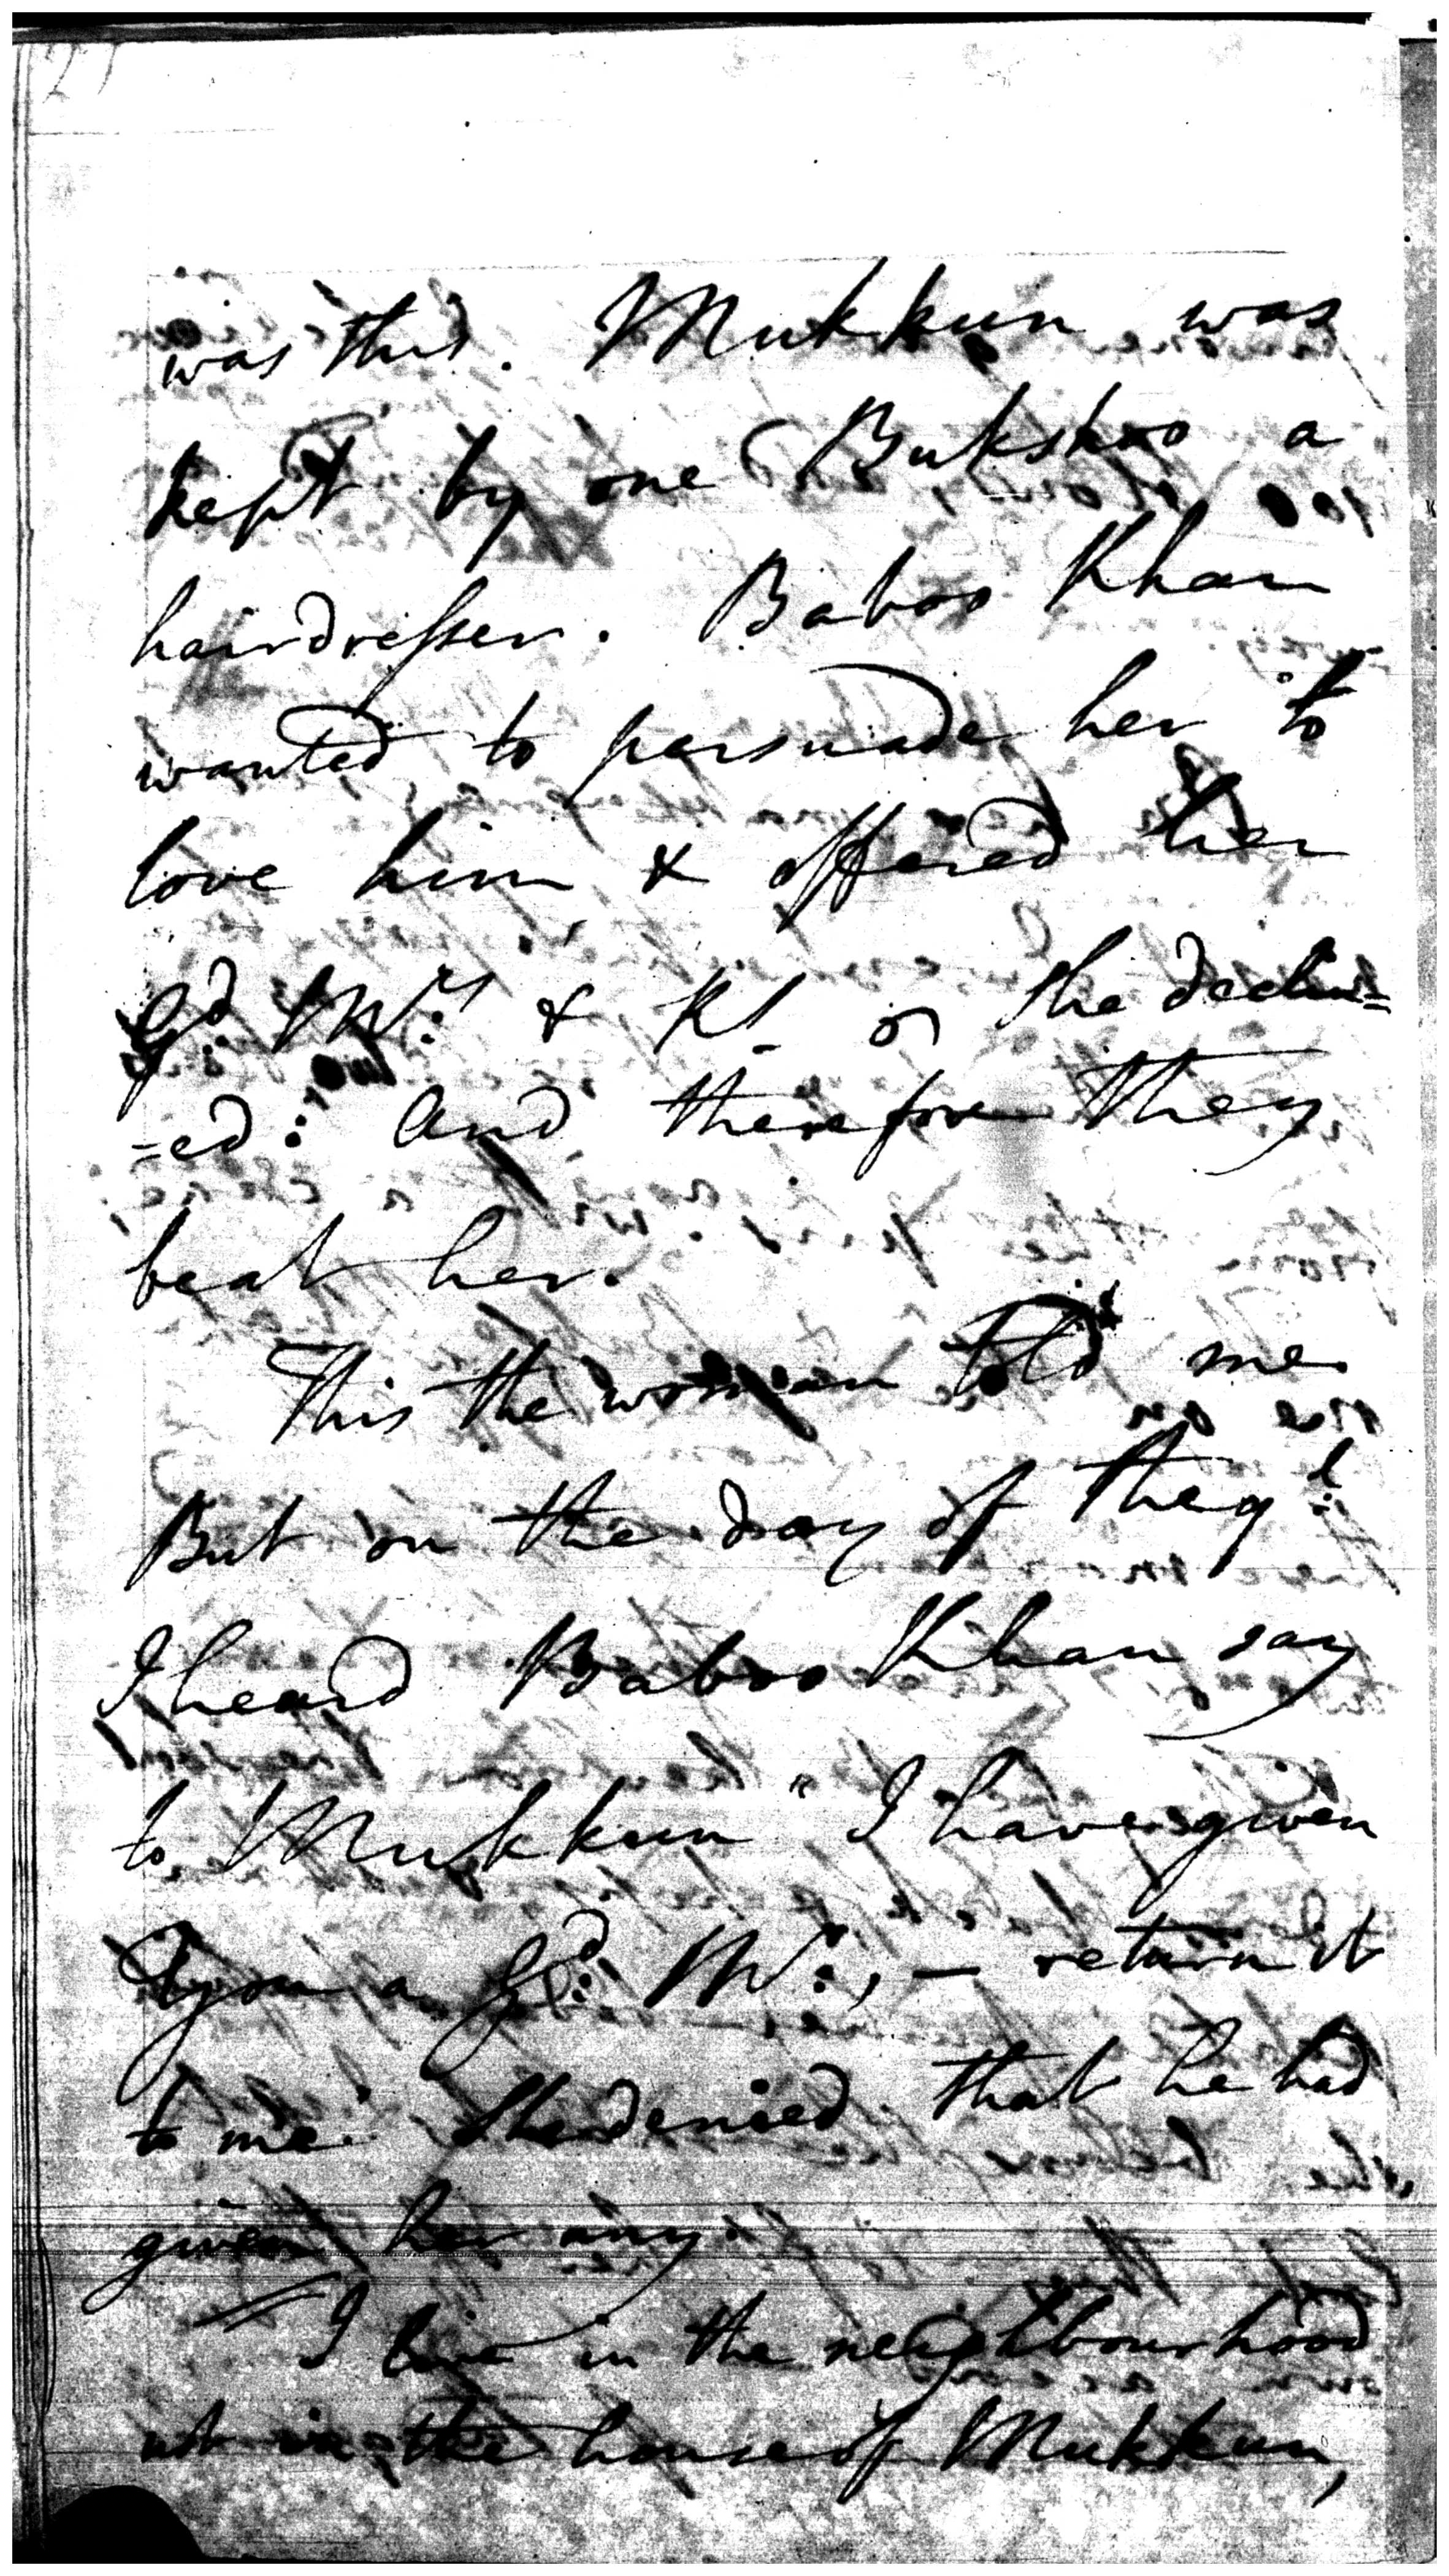 was this. Mukkun was
kept by one Bukshoo a
hairdresser. Baboo Khan
wanted to persuade her to
love him & offered her
Gd: Mrs: & Rs. She declin=
=ed: And therefore they
beat her.
This the woman told me
But on the day of the ql:
I heard Baboo Khan say
to Mukkun "I have given
you a Gd: Mr:, — return it
to me. She denied that he had
given her any.
I live in the neighbourhood
not in the house of Mukkun,